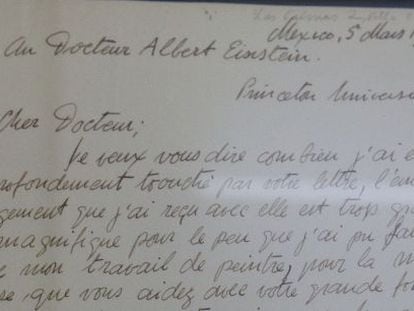 Mexico, 5 Mars 1
Au Docteur Albert Einstein.
Princeton Univers
Cher Docteur;
Je veux vous dire combien j'ai é
rofondement touché par votre lettre, l'en
gement que j'ai reçu avec elle est trop gr
magnifique pour le peu que j'ai pu fai
e mon travail de peintre, pour la m
se, que vous aidez avec votre grande fo